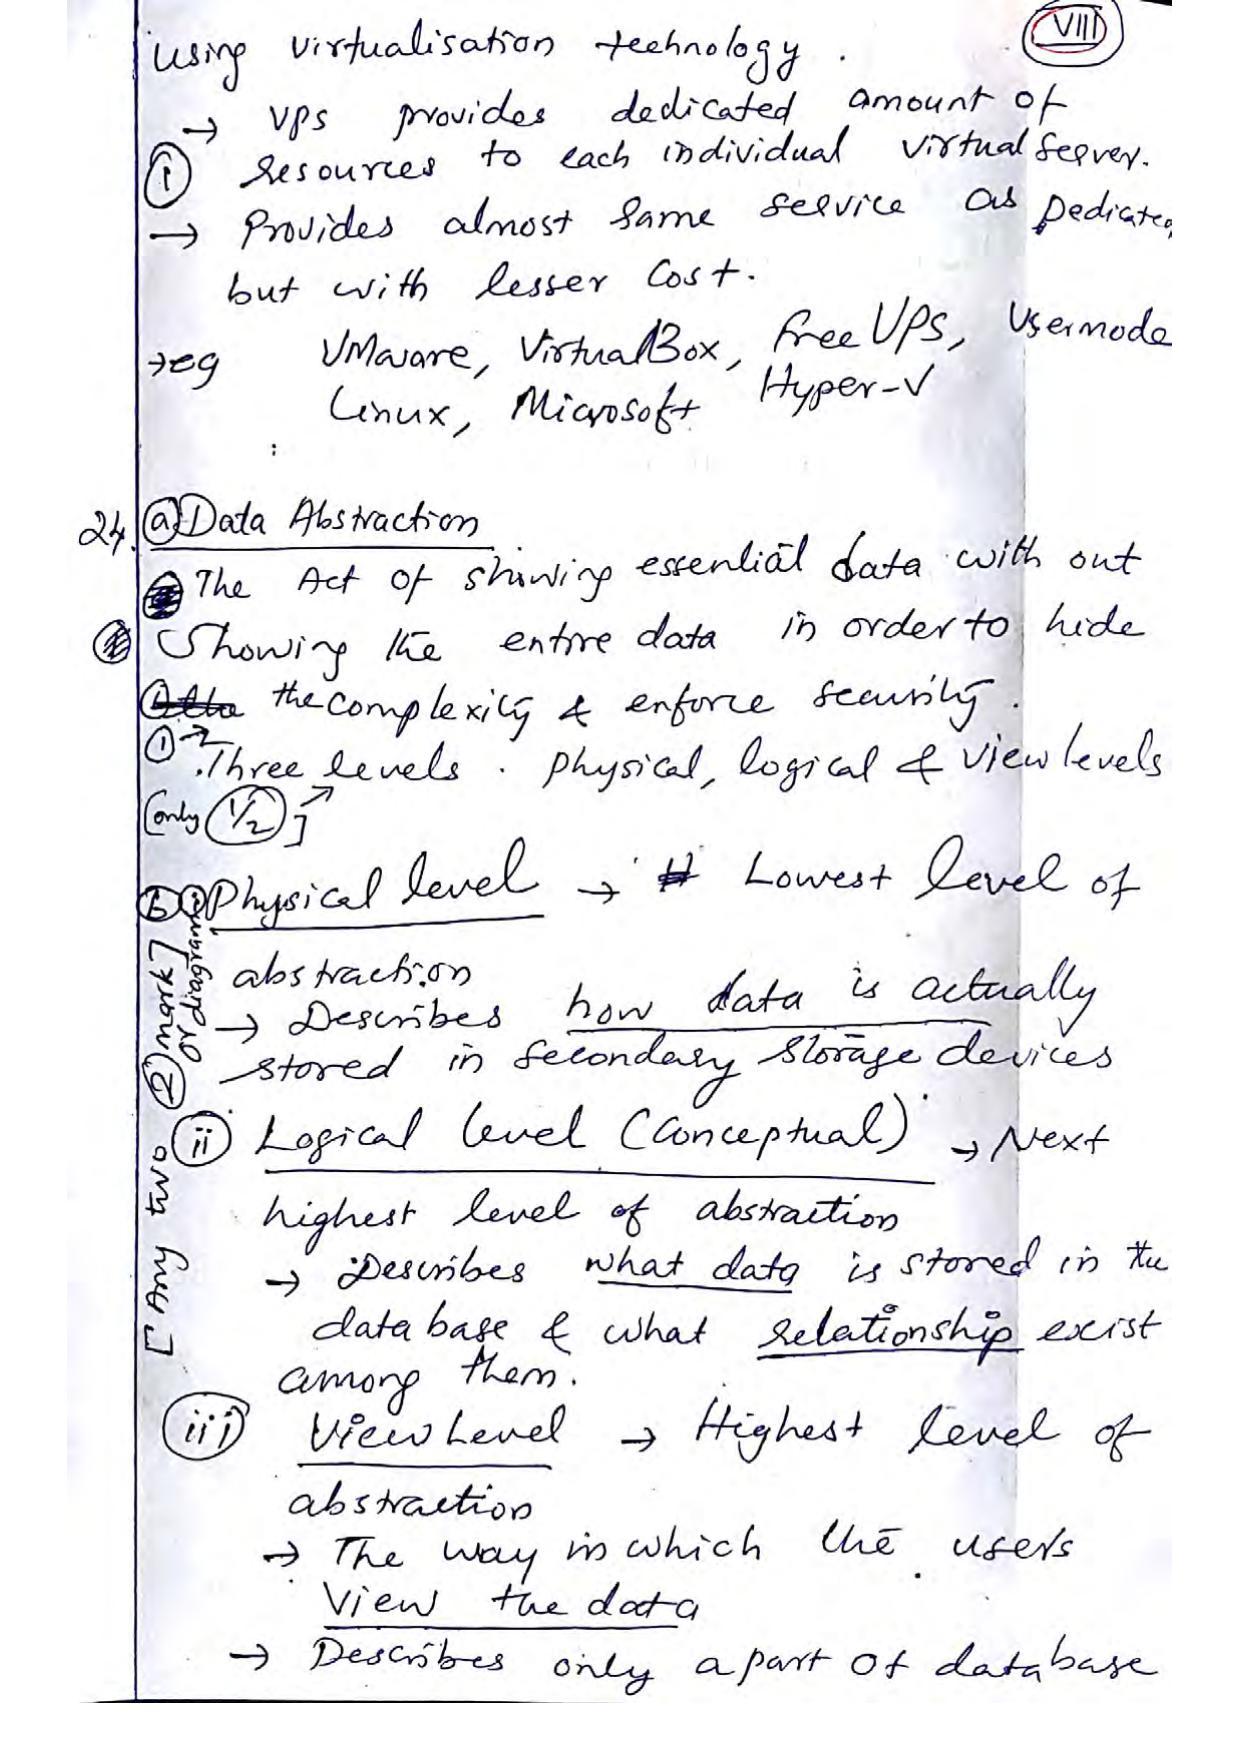 VIII
using virtualisation technology.
→ VPS provides dedicated amount of
① resources to each individual virtual server.
→ Provides almost same service as Dedicated
but with lesser cost.
→ eg VMware, VirtualBox, Free VPS, Usermode
Linux, Microsoft Hyper-V
24. ⓐ Data Abstraction
The Act of showing essential data with out
Showing the entire data in order to hide
the complexity & enforce security.
① →
Three levels. Physical, logical & View levels
[only 1/2]
ⓑ ⓘ Physical level → Lowest level of
abstraction
→ Describes how data is actually
stored in secondary storage devices
ii Logical level (Conceptual) → Next
highest level of abstraction
→ Describes what data is stored in the
data base & what relationship exist
among them.
iii View Level → Highest level of
abstraction
→ The way in which the users
View the data
→ Describes only a part of database
[Any two ② mark]
or diagram